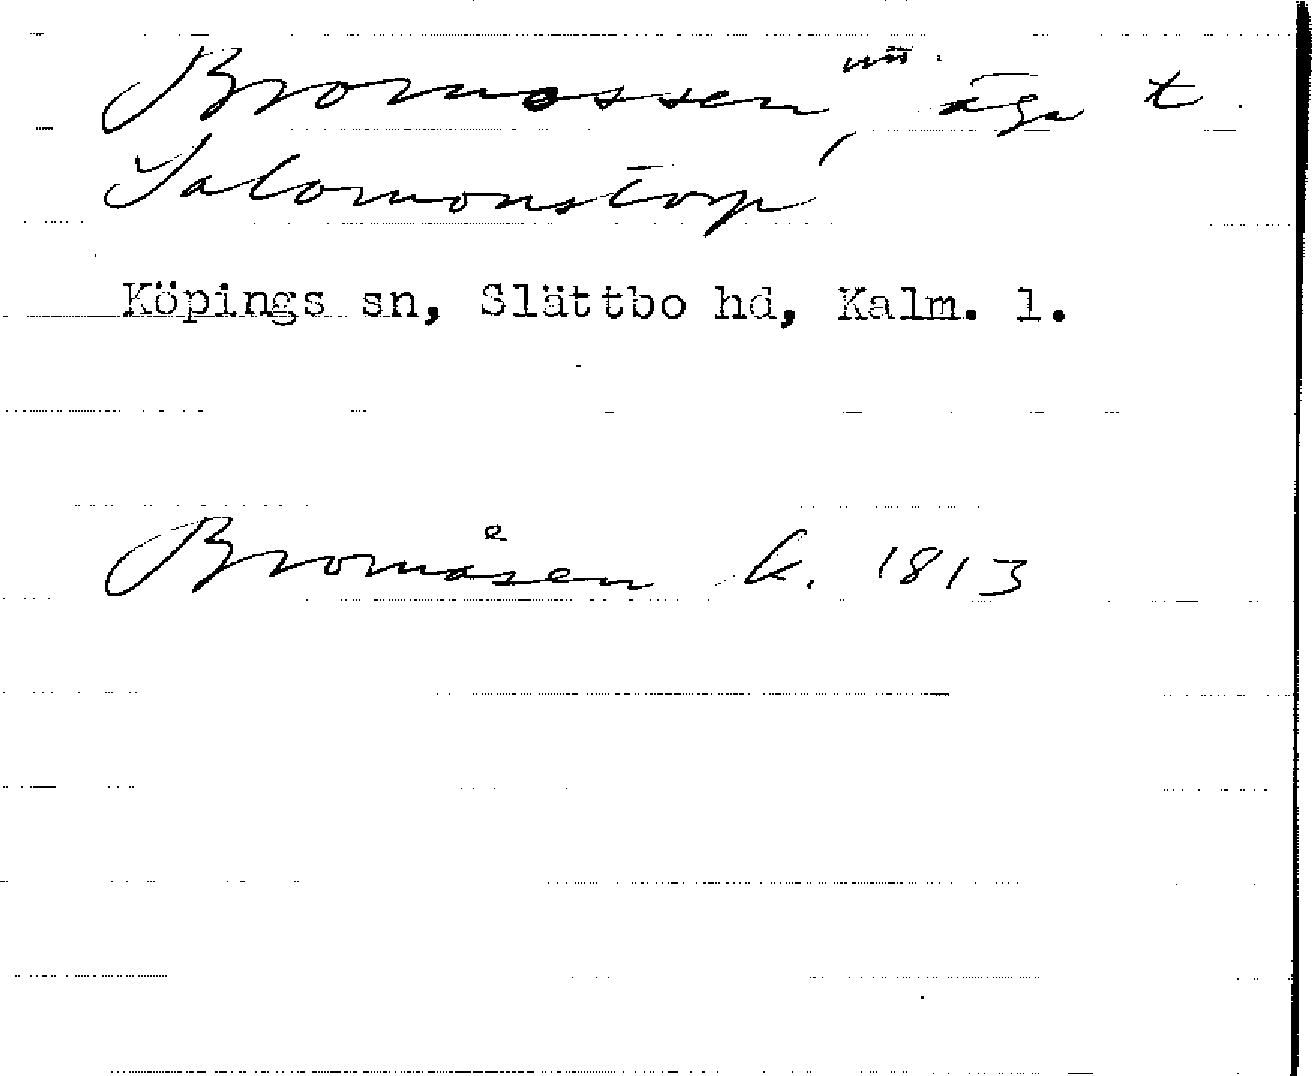 Bromossen, äga t.
Salomonstorp
Köpings sn, Slättbo hd, Kalm. l.
Bromåsen k. 1813